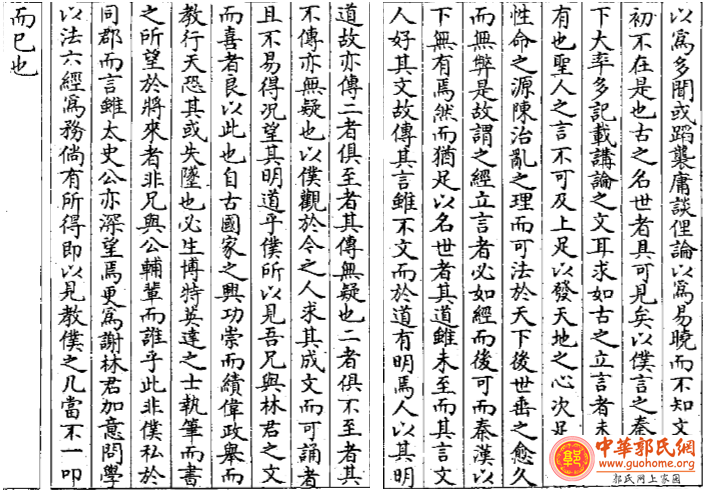 以爲多聞或蹈襲庸談俚論以爲易曉而不知文
初不在是也古之名世者具可見矣以僕言之秦
下大率多記載講論之文耳求如古之立言者未
有也聖人之言不可及上足以發天地之心次足
性命之源陳治亂之理而可法於天下後世垂之愈久
而無弊是故謂之經立言者必如經而後可而秦漢以
下無有焉然而猶足以名世者其道雖未至而其言文
人好其文故傳其言雖不文而於道有明焉人以其明
道故亦傳二者俱至者其傳無疑也二者俱不至者其
不傳亦無疑也以僕觀於今之人求其成文而可誦者
且不易得況望其明道乎僕所以見吾兄與林君之文
而喜者良以此也自古國家之興功崇而績偉政舉而
教行天恐其或失墜也必生博特英達之士執筆而書
之所望於將來者非兄與公輔輩而誰乎此非僕私於
同郡而言雖太史公亦深望焉更爲謝林君加意問學
以法六經爲務倘有所得即以見教僕之几當不一叩
而已也
中華郭氏網
www.guohome.org
郭氏网上家园